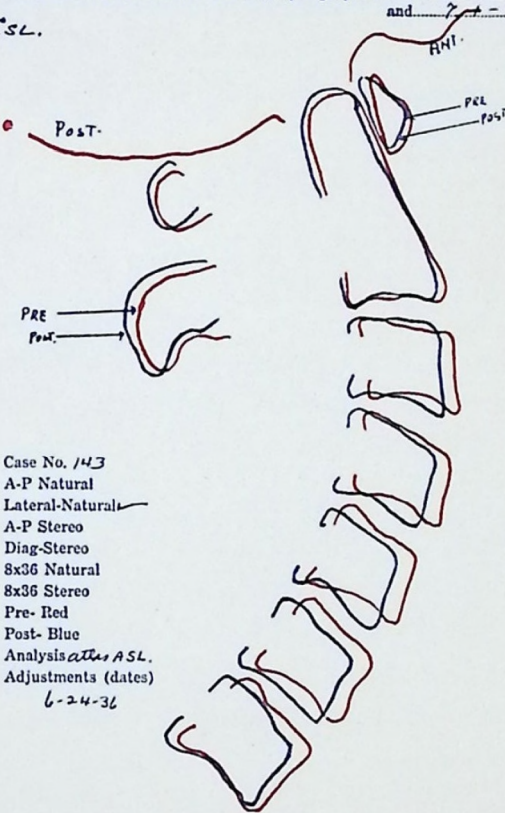 SL.
and 7 + -
ANT.
PRE
POST
POST-
PRE
POST.
Case No. 143
A-P Natural
Lateral-Natural
A-P Stereo
Diag-Stereo
8x36 Natural
8x36 Stereo
Pre- Red
Post- Blue
Analysis atlas ASL.
Adjustments (dates)
6-24-36